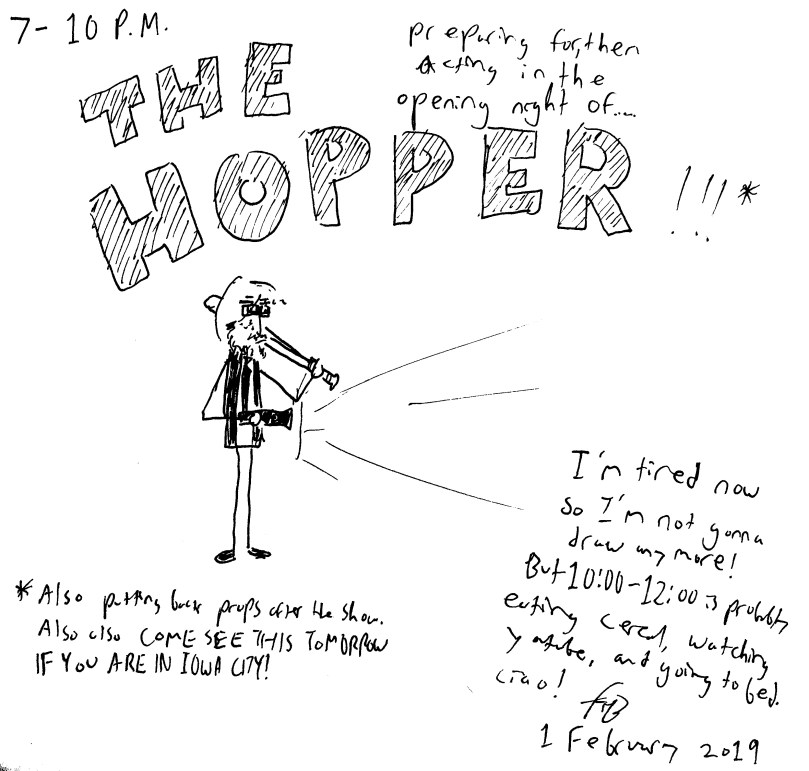 7-10 P.M.
preparing for, then
acting in the
opening night of...
THE
HOPPER
!!!*
I'm tired now
so I'm not gonna
draw any more!
But 10:00-12:00 is probably
eating cereal, watching
youtube, and going to bed.
ciao!
1 February 2019
*Also putting back props after the show.
Also also COME SEE THIS TOMORROW
IF YOU ARE IN IOWA CITY!